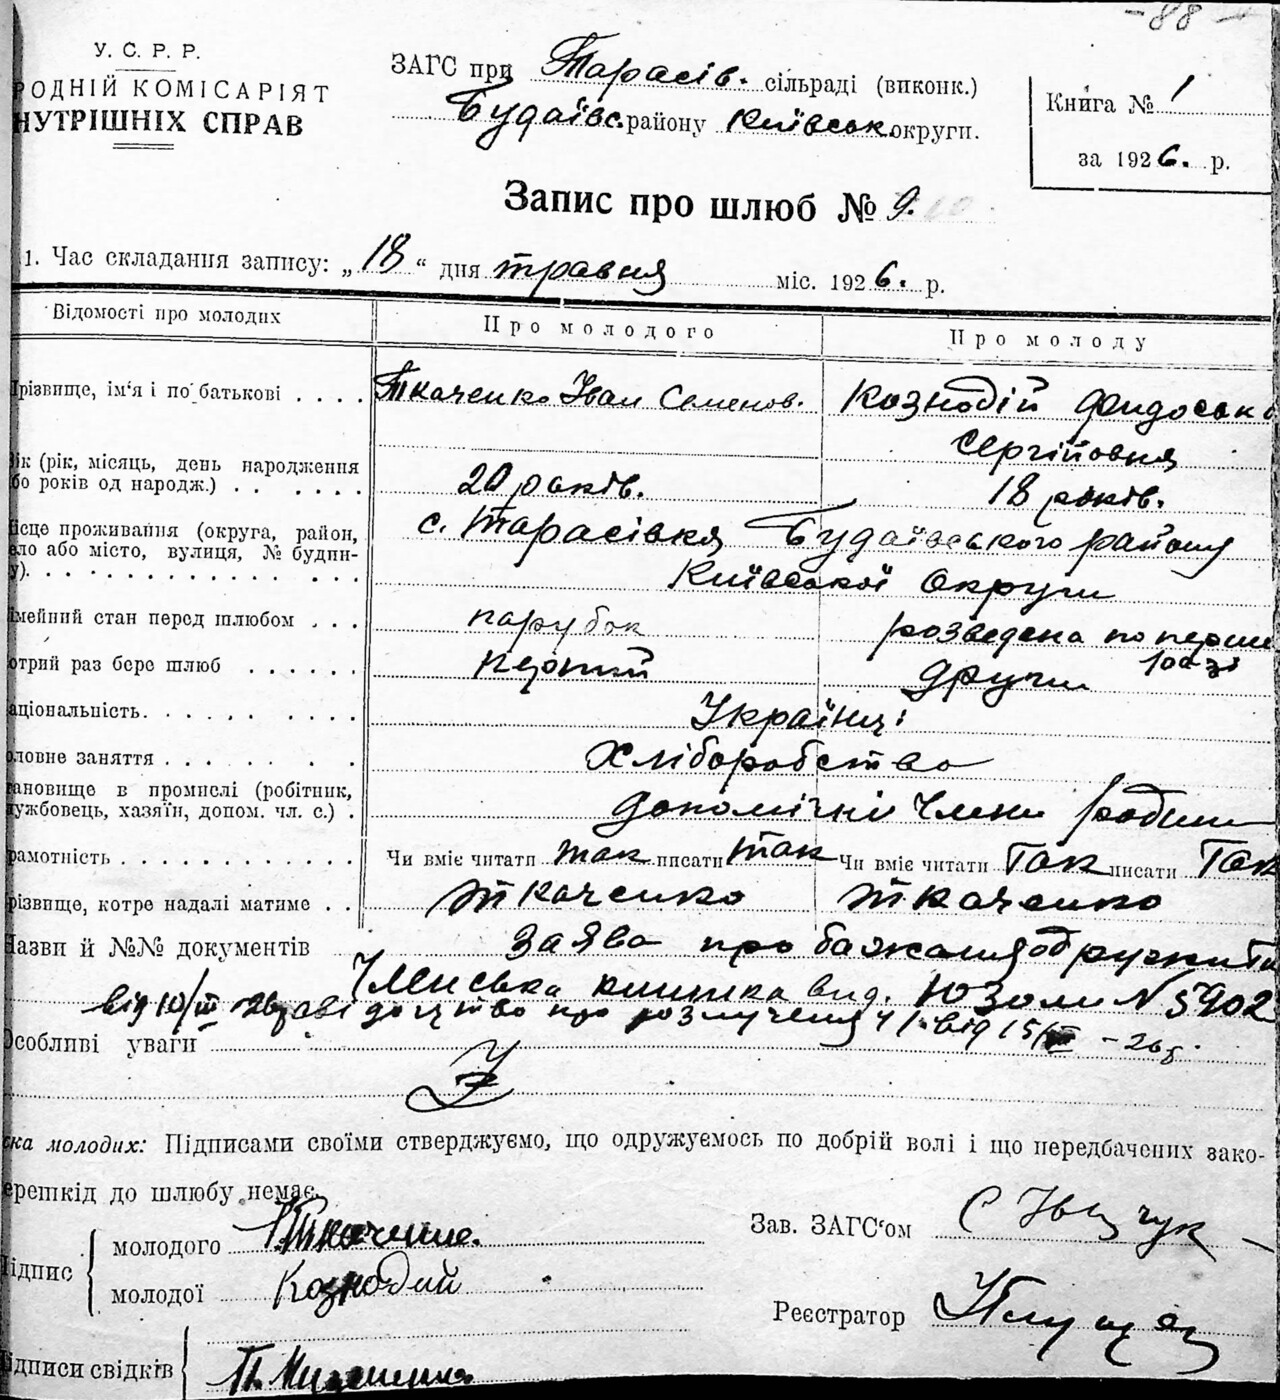 -88-
У. С. Р. Р.
РОДНІЙ КОМІСАРІЯТ
НУТРІШНІХ СПРАВ
ЗАГС при Тарасів. сільраді (виконк.)
Будаївс. району Київськ. округи.
Книга № 1
за 1926. р.
Запис про шлюб № 9.
1. Час складання запису: „18“ дня травня міс. 1926. р.
Відомості про молодих
Про молодого
Про молоду
прізвище, ім'я і по батькові . . . . Ткаченко Іван Семенов. Кознодій Фидоська
Сергіївня
ік (рік, місяць, день народження
бо років од народж.) . . . . . . 20 років. 18 років.
ісце проживання (округа, район,
ело або місто, вулиця, № будин-
у). с. Тарасівка Будаївського району
Київської Округи
імейний стан перед шлюбом . . . парубок розведена по перше
отрий раз бере шлюб . . . . . . перший други
аціональність. Українці
оловне заняття Хліборобство
тановище в промислі (робітник,
ужбовець, хазяїн, допом. чл. с.) . допомічні члени родини
рамотність Чи вміє читати так писати так Чи вміє читати Так писати Так
різвище, котре надалі матиме . . Ткаченко Ткаченко
Назви й №№ документів Заява про бажання одружити
Членська книжка вид. № 5902
від 10/ІІІ 26р. свідоцтво про розлучення ч 1 від 15/ІІІ - 26р.
Особливі уваги
ска молодих: Підписами своїми стверджуємо, що одружуємось по добрій волі і що передбачених зако-
ерешкід до шлюбу немає.
Підпис
молодого Ткаченко.
молодої Кознодий
Зав. ЗАГС'ом
Реєстратор
ідписи свідків